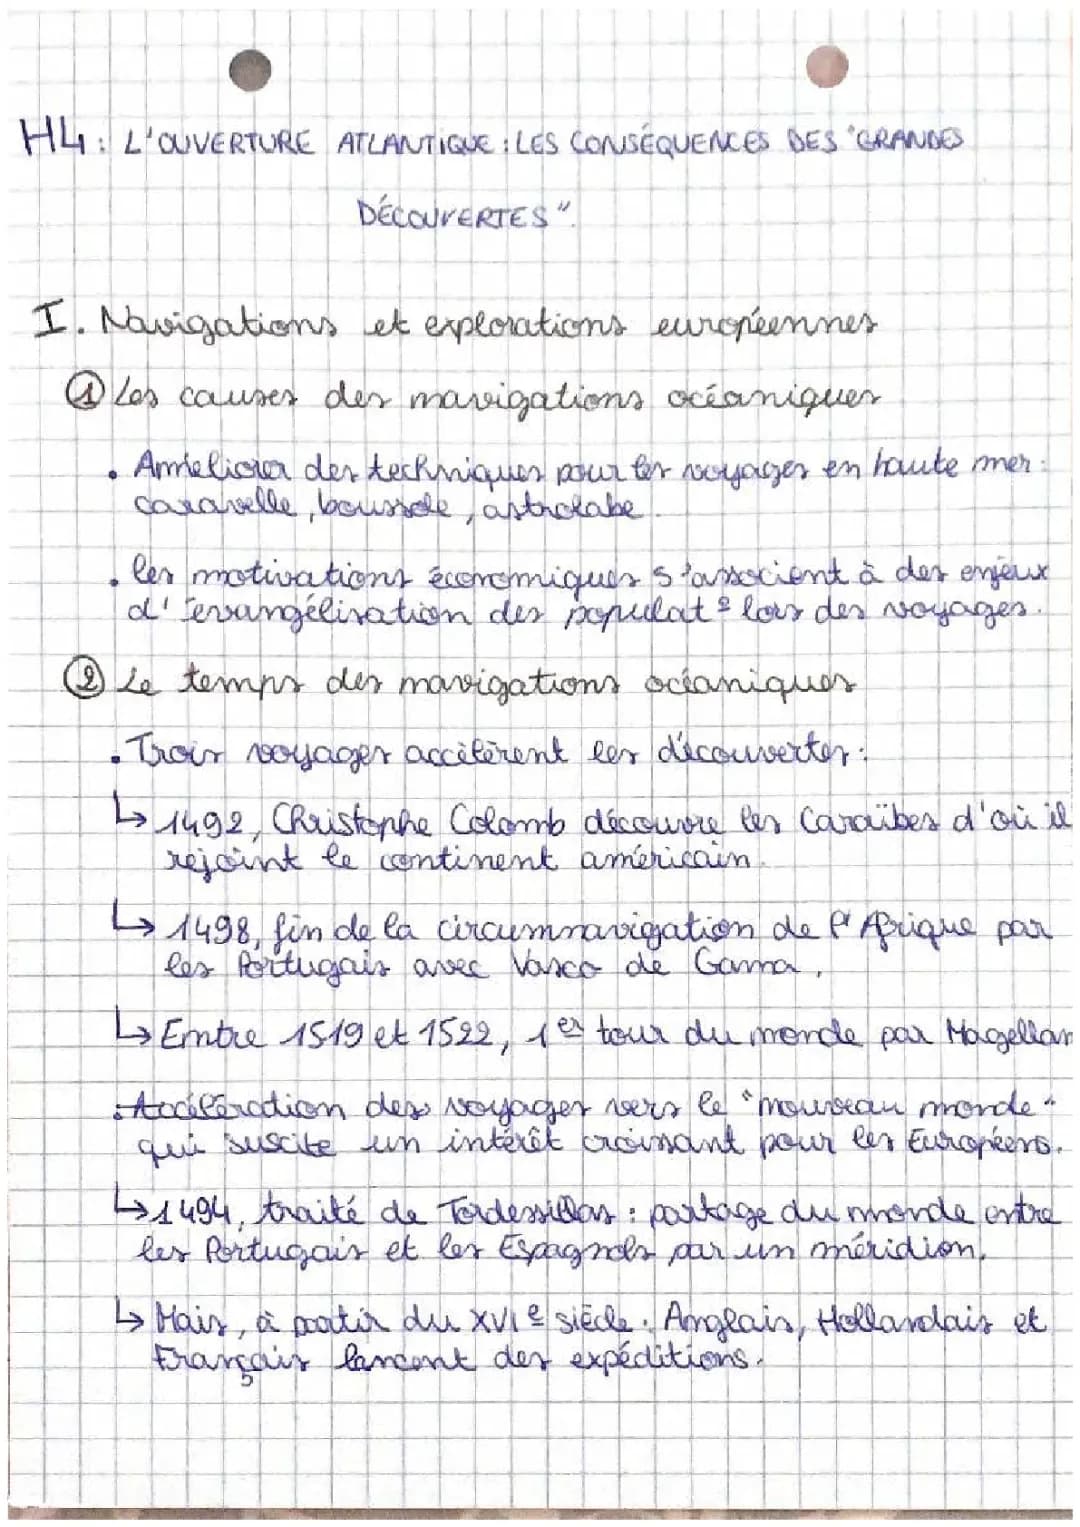 H4 : L'OUVERTURE ATLANTIQUE : LES CONSÉQUENCES DES "GRANDES
DÉCOUVERTES".
I. Navigations et explorations européennes
① Les causes des navigations océaniques
• Améliorer des techniques pour les voyages en haute mer :
caravelle, boussole, astrolabe.
• les motivations économiques s'associent à des enjeux
d'évangélisation des populat° lors des voyages.
② Le temps des navigations océaniques
• Trois voyages accélèrent les découvertes :
↳ 1492, Christophe Colomb découvre les Caraïbes d'où il
rejoint le continent américain.
↳ 1498, fin de la circumnavigation de l'Afrique par
les Portugais avec Vasco de Gama,
↳ Entre 1519 et 1522, 1er tour du monde par Magellan
• Accélération des voyages vers le "nouveau monde"
qui suscite un intérêt croissant pour les Européens.
↳ 1494, traité de Tordessillas : partage du monde entre
les Portugais et les Espagnols par un méridion.
↳ Mais, à partir du XVIe siècle : Anglais, Hollandais et
Français lancent des expéditions.